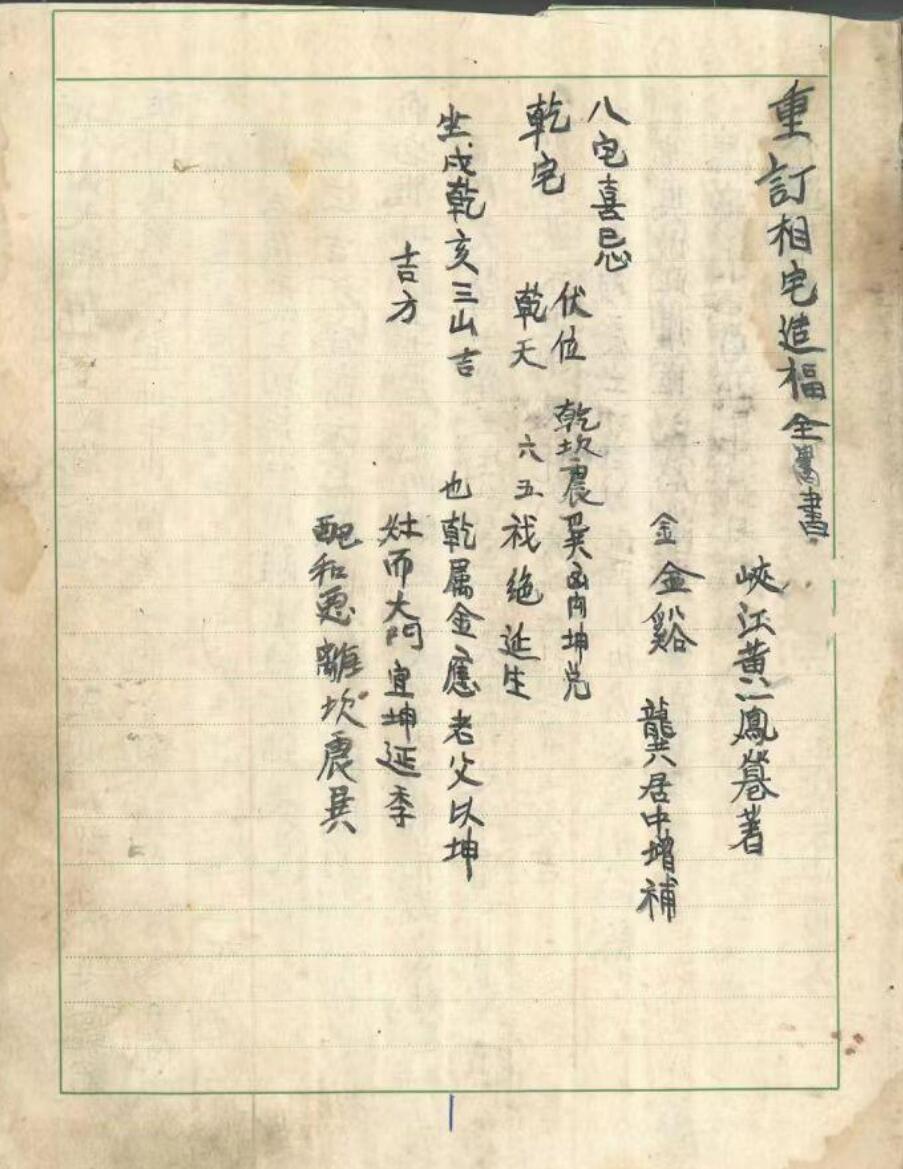 重訂相宅造福全書
峽江黃一鳳鶱著
金金谿 龔居中增補
八宅喜忌
伏位 乾坎震巽離坤兑
乾宅 乾天 六五祸绝延生
坐戌乾亥三山吉 也乾属金應老父以坤
吉方 灶而大门宜坤延季
配和忌離坎震巽